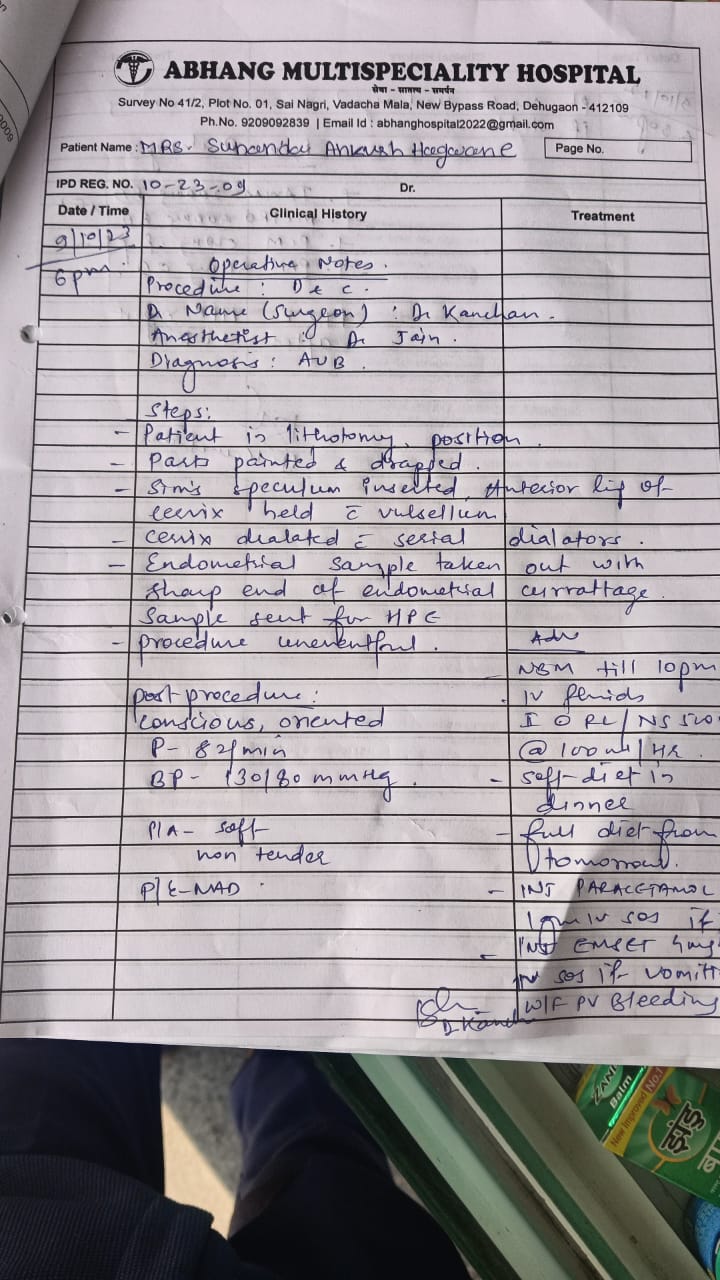 ABHANG MULTISPECIALITY HOSPITAL
सेवा - सातत्य - समर्पन
Survey No 41/2, Plot No. 01, Sai Nagri, Vadacha Mala, New Bypass Road, Dehugaon - 412109
Ph.No. 9209092839 | Email Id : abhanghospital2022@gmail.com
Patient Name : MRS. Sunanda Ankush Hagwane Page No.
IPD REG. NO. 10-23-09 Dr.
Date / Time Clinical History Treatment
9/10/23
6pm. Operative Notes.
Procedure : D & C.
Dr Name (Surgeon) : Dr Kanchan.
Anesthetist : Dr Jain.
Diagnosis : AUB
Steps:
- Patient in lithotomy position.
- Parts painted & drapped.
- Sim's speculum inserted, Anterior lip of
cervix held c̄ vulsellum
- cervix dialated c̄ serial dialators.
- Endometrial sample taken out with
sharp end of endometrial currattage.
Sample sent for HPE
- procedure uneventful. Adv
NBM till 10pm
post procedure : IV fluids
conscious, oriented I O RL/NS 500
P- 82/min @ 100 ml/HR.
BP- 130/80 mmHg. - soft diet in
dinner
P/A - soft - full diet from
non tender tomorrow.
P/E-NAD - INJ PARACETAMOL
1gm IV SOS if
- INJ EMSET 4mg
IV SOS if vomitt
W/F PV Bleeding
Dr Kanch
ZANDU
Balm
New Improved No.1
झंडु